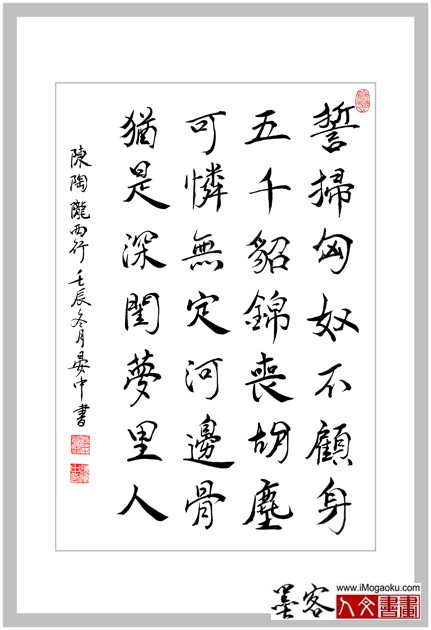 誓掃匈奴不顧身
五千貂錦喪胡塵
可憐無定河邊骨
猶是深閨夢里人
陳陶隴西行 壬辰冬月晏中書
墨客
www.iMogaoku.com
人文書畫